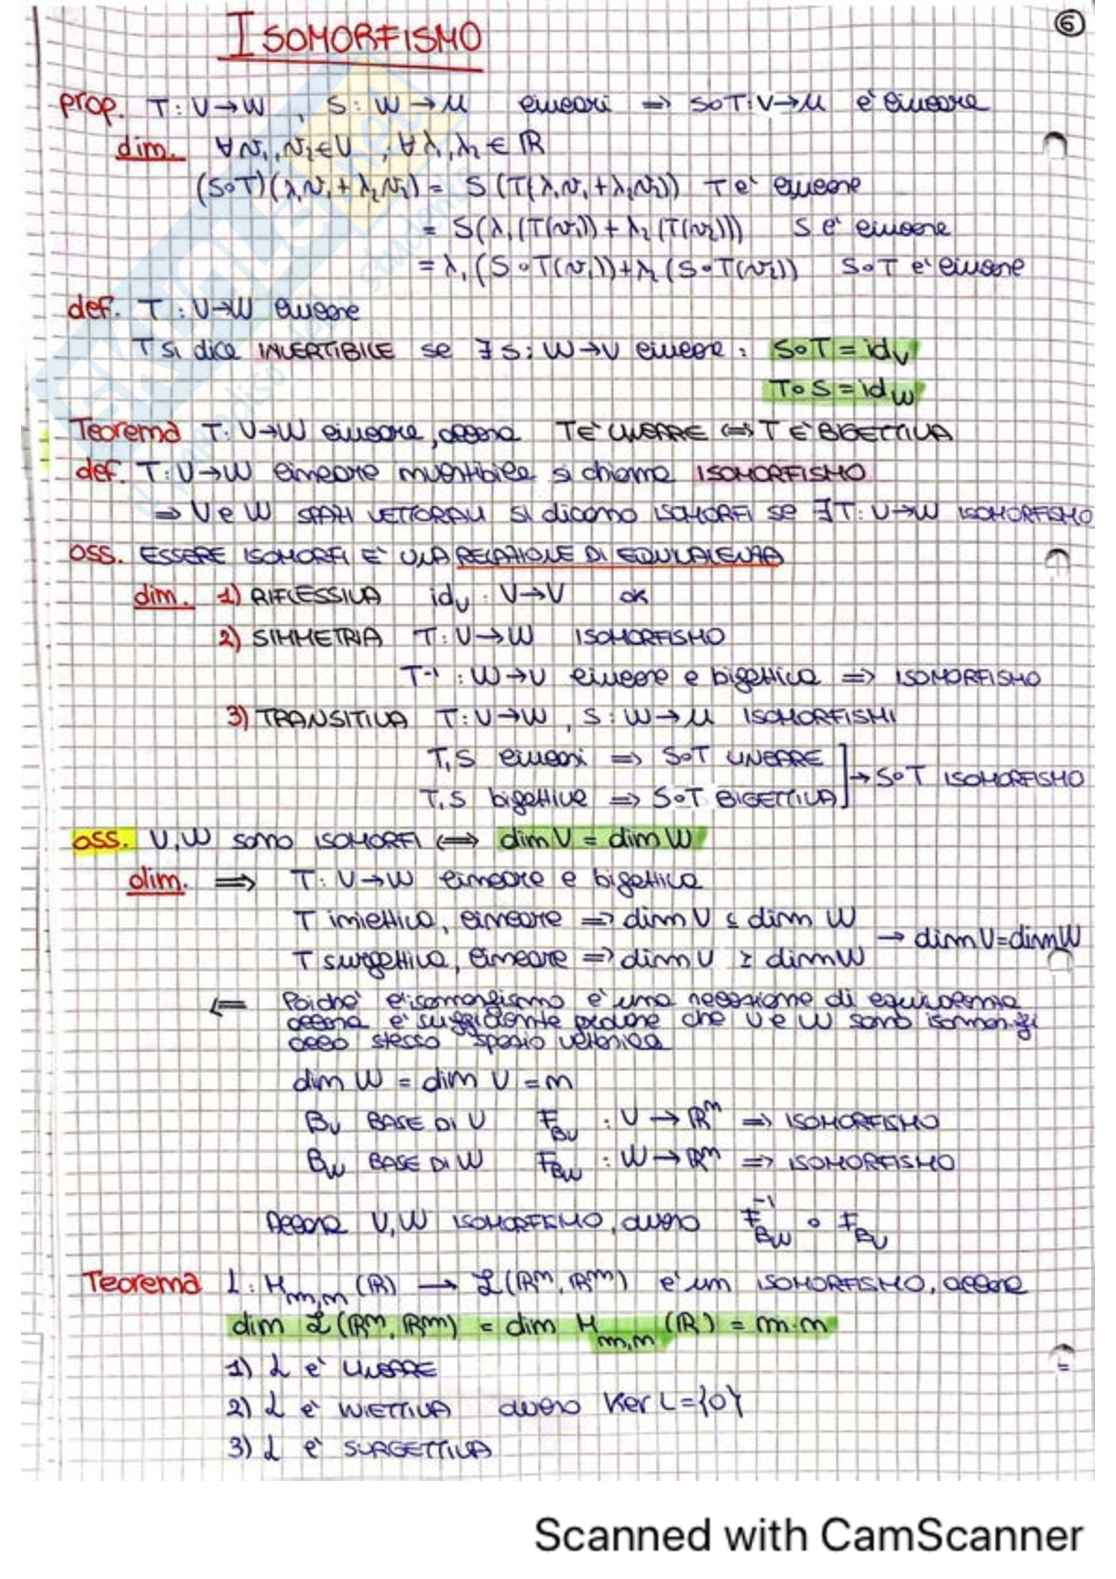 6
ISOMORFISMO
prop. T: V→W , S: W→U lineari ⇒ S∘T: V→U è lineare
dim. ∀v₁, v₂∈V , ∀λ₁, λ₂ ∈ ℝ
(S∘T)(λ₁v₁ + λ₂v₂) = S(T(λ₁v₁ + λ₂v₂)) T è lineare
= S(λ₁(T(v₁)) + λ₂(T(v₂))) S è lineare
= λ₁(S∘T(v₁)) + λ₂(S∘T(v₂)) S∘T è lineare
def. T: V→W lineare
T si dice INVERTIBILE se ∃ S: W→V lineare : S∘T = id_V
T∘S = id_W
Teorema T: V→W lineare, allora T È LINEARE ⟺ T È BIGETTIVA
def. T: V→W lineare invertibile si chiama ISOMORFISMO
⇒ V e W SPAZI VETTORIALI si dicono ISOMORFI se ∃T: V→W ISOMORFISMO
OSS. ESSERE ISOMORFI È UNA RELAZIONE DI EQUIVALENZA
dim. 1) RIFLESSIVA id_V : V→V ok
2) SIMMETRIA T: V→W ISOMORFISMO
T⁻¹ : W→V lineare e bigettiva ⇒ ISOMORFISMO
3) TRANSITIVA T: V→W , S: W→U ISOMORFISMI
T, S lineari ⇒ S∘T LINEARE
T, S bigettive ⇒ S∘T BIGETTIVA] → S∘T ISOMORFISMO
OSS. V, W sono ISOMORFI ⟺ dim V = dim W
dim. ⇒ T: V→W lineare e bigettiva
T iniettiva, lineare ⇒ dim V ≤ dim W
T surgettiva, lineare ⇒ dim V ≥ dim W → dim V = dim W
⇐ Poiché l'isomorfismo è una relazione di equivalenza
allora è sufficiente provare che V e W sono isomorfi
allo stesso spazio vettoriale
dim W = dim V = n
B_V BASE DI V F_{B_V} : V→ℝⁿ ⇒ ISOMORFISMO
B_W BASE DI W F_{B_W} : W→ℝⁿ ⇒ ISOMORFISMO
Allora V, W ISOMORFISMO, ovvero F⁻¹_{B_W} ∘ F_{B_V}
Teorema L: M_{m,n}(ℝ) → ℒ(ℝⁿ, ℝᵐ) è un ISOMORFISMO, allora
dim ℒ(ℝⁿ, ℝᵐ) = dim M_{m,n}(ℝ) = m·n
1) L è LINEARE
2) L è INIETTIVA ovvero Ker L = {0}
3) L è SURGETTIVA
Scanned with CamScanner